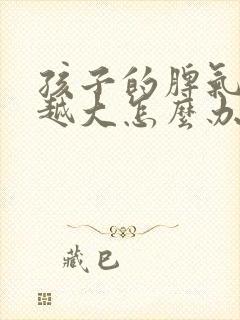 孩子的脾氣
越大怎麼办
藏巴